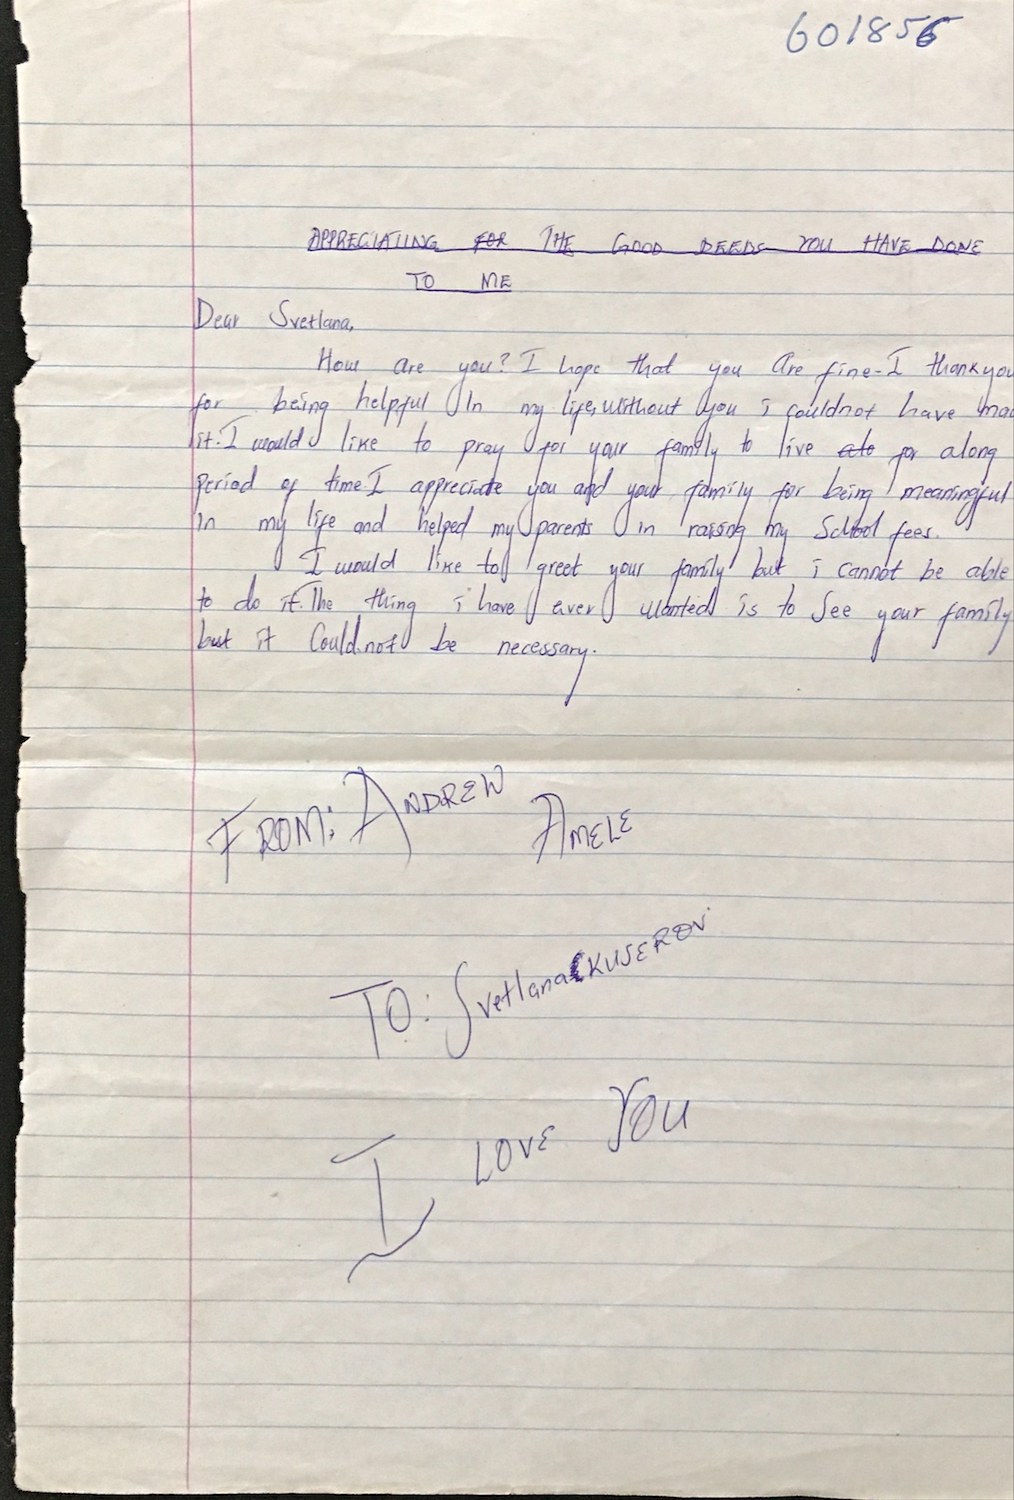 601856
APPRECIATING FOR THE GOOD DEEDS YOU HAVE DONE
TO ME
Dear Svetlana,
How are you? I hope that you are fine-I thankyou
for being helpful In my life, without you i couldnot have mad
it. I would like to pray for your family to live ato for along
period of time. I appreciate you and your family for being meaningful
In my life and helped my parents In raising my School fees.
I would like to greet your family but i cannot be able
to do it. The thing i have ever wanted is to See your family
but it Could.not be necessary.
FROM: ANDREW
AMELE
TO: Svetlana KUSEROV
I LOVE YOU